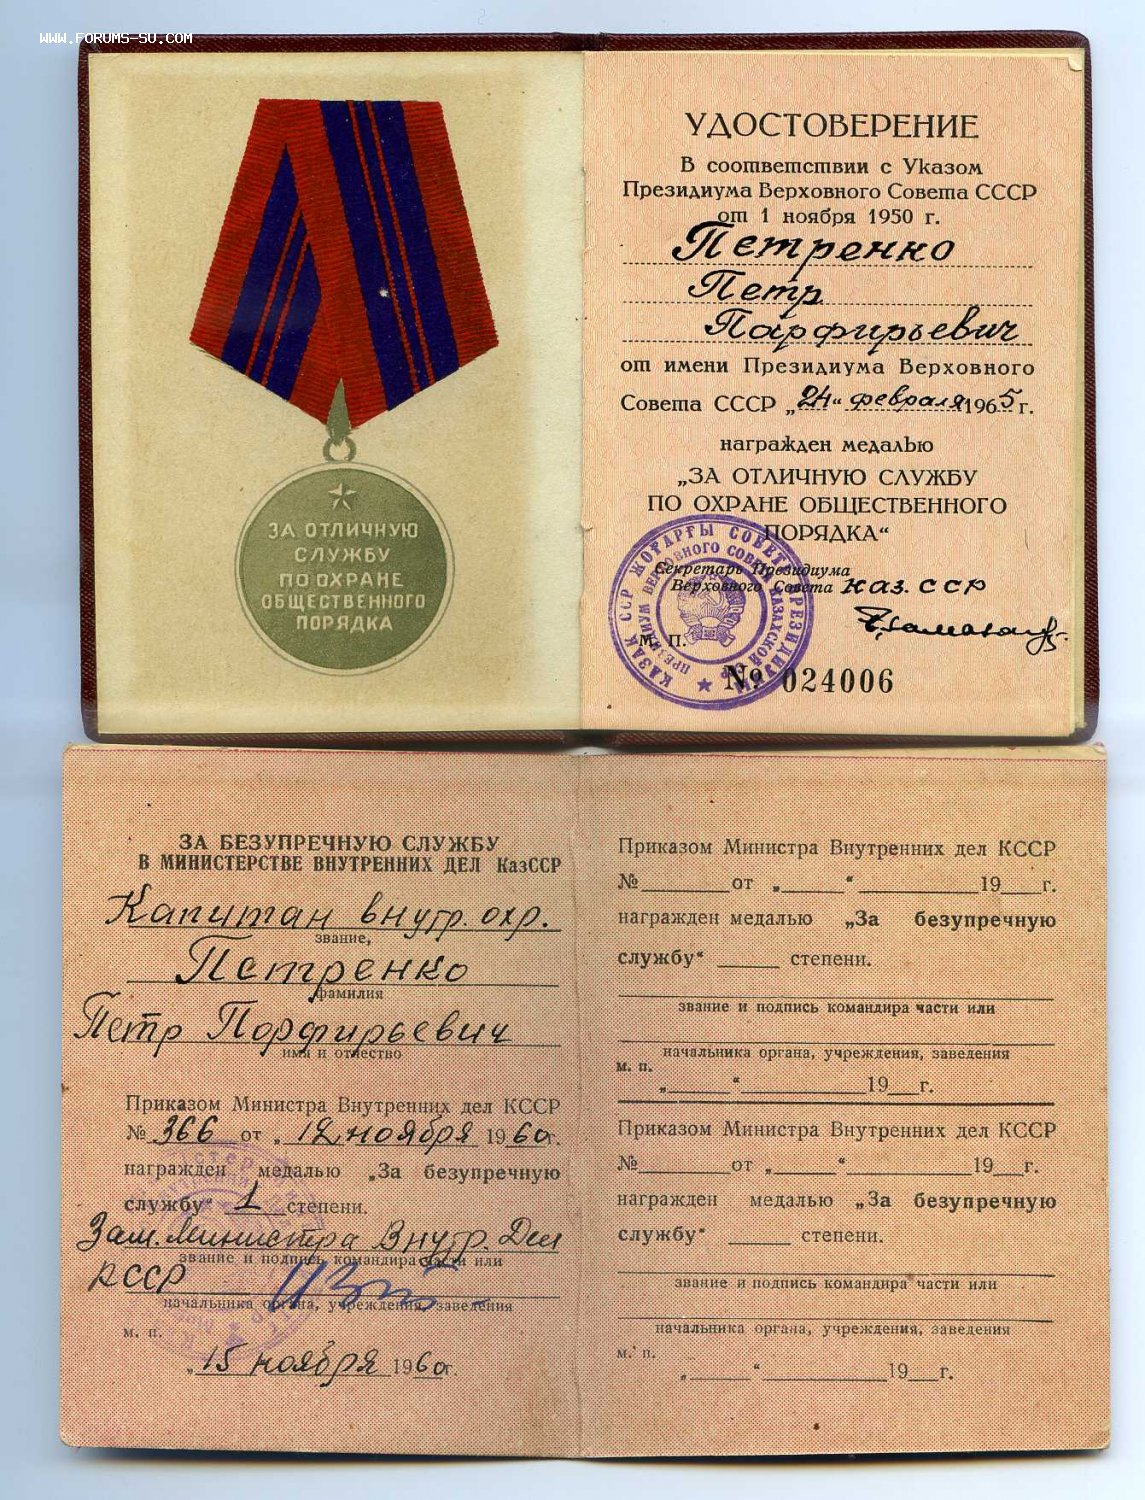 WWW.FORUMS-SU.COM
ЗА ОТЛИЧНУЮ
СЛУЖБУ
ПО ОХРАНЕ
ОБЩЕСТВЕННОГО
ПОРЯДКА
УДОСТОВЕРЕНИЕ
В соответствии с Указом
Президиума Верховного Совета СССР
от 1 ноября 1950 г.
Петренко
Петр
Парфирьевич
от имени Президиума Верховного
Совета СССР „24“ февраля 1965 г.
награжден медалью
„ЗА ОТЛИЧНУЮ СЛУЖБУ
ПО ОХРАНЕ ОБЩЕСТВЕННОГО
ПОРЯДКА“
Секретарь Президиума
Верховного Совета Каз. ССР
М. П.
КАЗАК ССР ЖОҒАРҒЫ СОВЕТ ПРЕЗИДИУМЫ
ПРЕЗИДИУМ ВЕРХОВНОГО СОВЕТА КАЗАХСКОЙ ССР
№ 024006
ЗА БЕЗУПРЕЧНУЮ СЛУЖБУ
В МИНИСТЕРСТВЕ ВНУТРЕННИХ ДЕЛ КазССР
Капитан внутр. охр.
звание,
Петренко
фамилия
Петр Порфирьевич
имя и отчество
Приказом Министра Внутренних дел КССР
№ 366 от „12 ноября 1960г.
награжден медалью „За безупречную
службу“ 1 степени.
Зам. Министра Внутр. Дел
звание и подпись командира части или
КССР
начальника органа, учреждения, заведения
м. п.
„15 ноября 1960г.
Приказом Министра Внутренних дел КССР
№ от „ “ 19 г.
награжден медалью „За безупречную
службу“ степени.
звание и подпись командира части или
начальника органа, учреждения, заведения
м. п.
„ “ 19 г.
Приказом Министра Внутренних дел КССР
№ от „ “ 19 г.
награжден медалью „За безупречную
службу“ степени.
звание и подпись командира части или
начальника органа, учреждения, заведения
м. п.
„ “ 19 г.